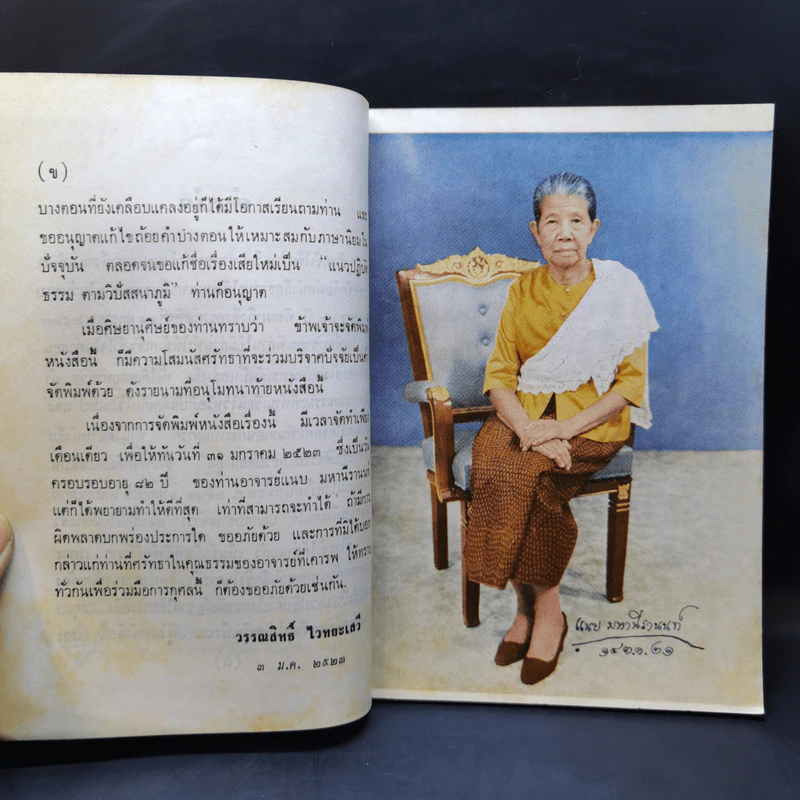 (ข)
บางตอนที่ยังเคลือบแคลงอยู่ก็ได้มีโอกาสเรียนถามท่าน และ
ขออนุญาตแก้ไขถ้อยคำบางตอนให้เหมาะสมกับภาษานิยมใน
ปัจจุบัน ตลอดจนขอแก้ชื่อเรื่องเสียใหม่เป็น “แนวปฏิบัติ
ธรรม ตามวิปัสสนาภูมิ” ท่านก็อนุญาต
เมื่อศิษยานุศิษย์ของท่านทราบว่า ข้าพเจ้าจะจัดพิมพ์
หนังสือนี้ ก็มีความโสมนัสศรัทธาที่จะร่วมบริจาคปัจจัยเป็นค่า
จัดพิมพ์ด้วย ดังรายนามที่อนุโมทนาท้ายหนังสือนี้
เนื่องจากการจัดพิมพ์หนังสือเรื่องนี้ มีเวลาจัดทำเพียง
เดือนเดียว เพื่อให้ทันวันที่ ๓๑ มกราคม ๒๕๒๓ ซึ่งเป็นวัน
ครอบรอบอายุ ๘๒ ปี ของท่านอาจารย์แนบ มหานีรานนท์
แต่ก็ได้พยายามทำให้ดีที่สุด เท่าที่สามารถจะทำได้ ถ้ามีการ
ผิดพลาดบกพร่องประการใด ขออภัยด้วย และการที่มิได้บอก
กล่าวแก่ท่านที่ศรัทธาในคุณธรรมของอาจารย์ที่เคารพ ให้ทราบ
ทั่วกันเพื่อร่วมมือการกุศลนี้ ก็ต้องขออภัยด้วยเช่นกัน.
วรรณสิทธิ์ ไวทยะเสวี
๓ ม.ค. ๒๕๒๓
แนบ มหานีรานนท์
๑๔๐.๑.๒๑